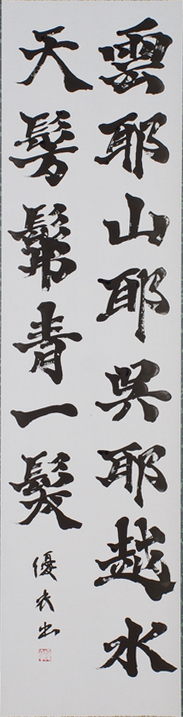 雲耶山耶呉耶越水
天髣髴青一髪
優衣出